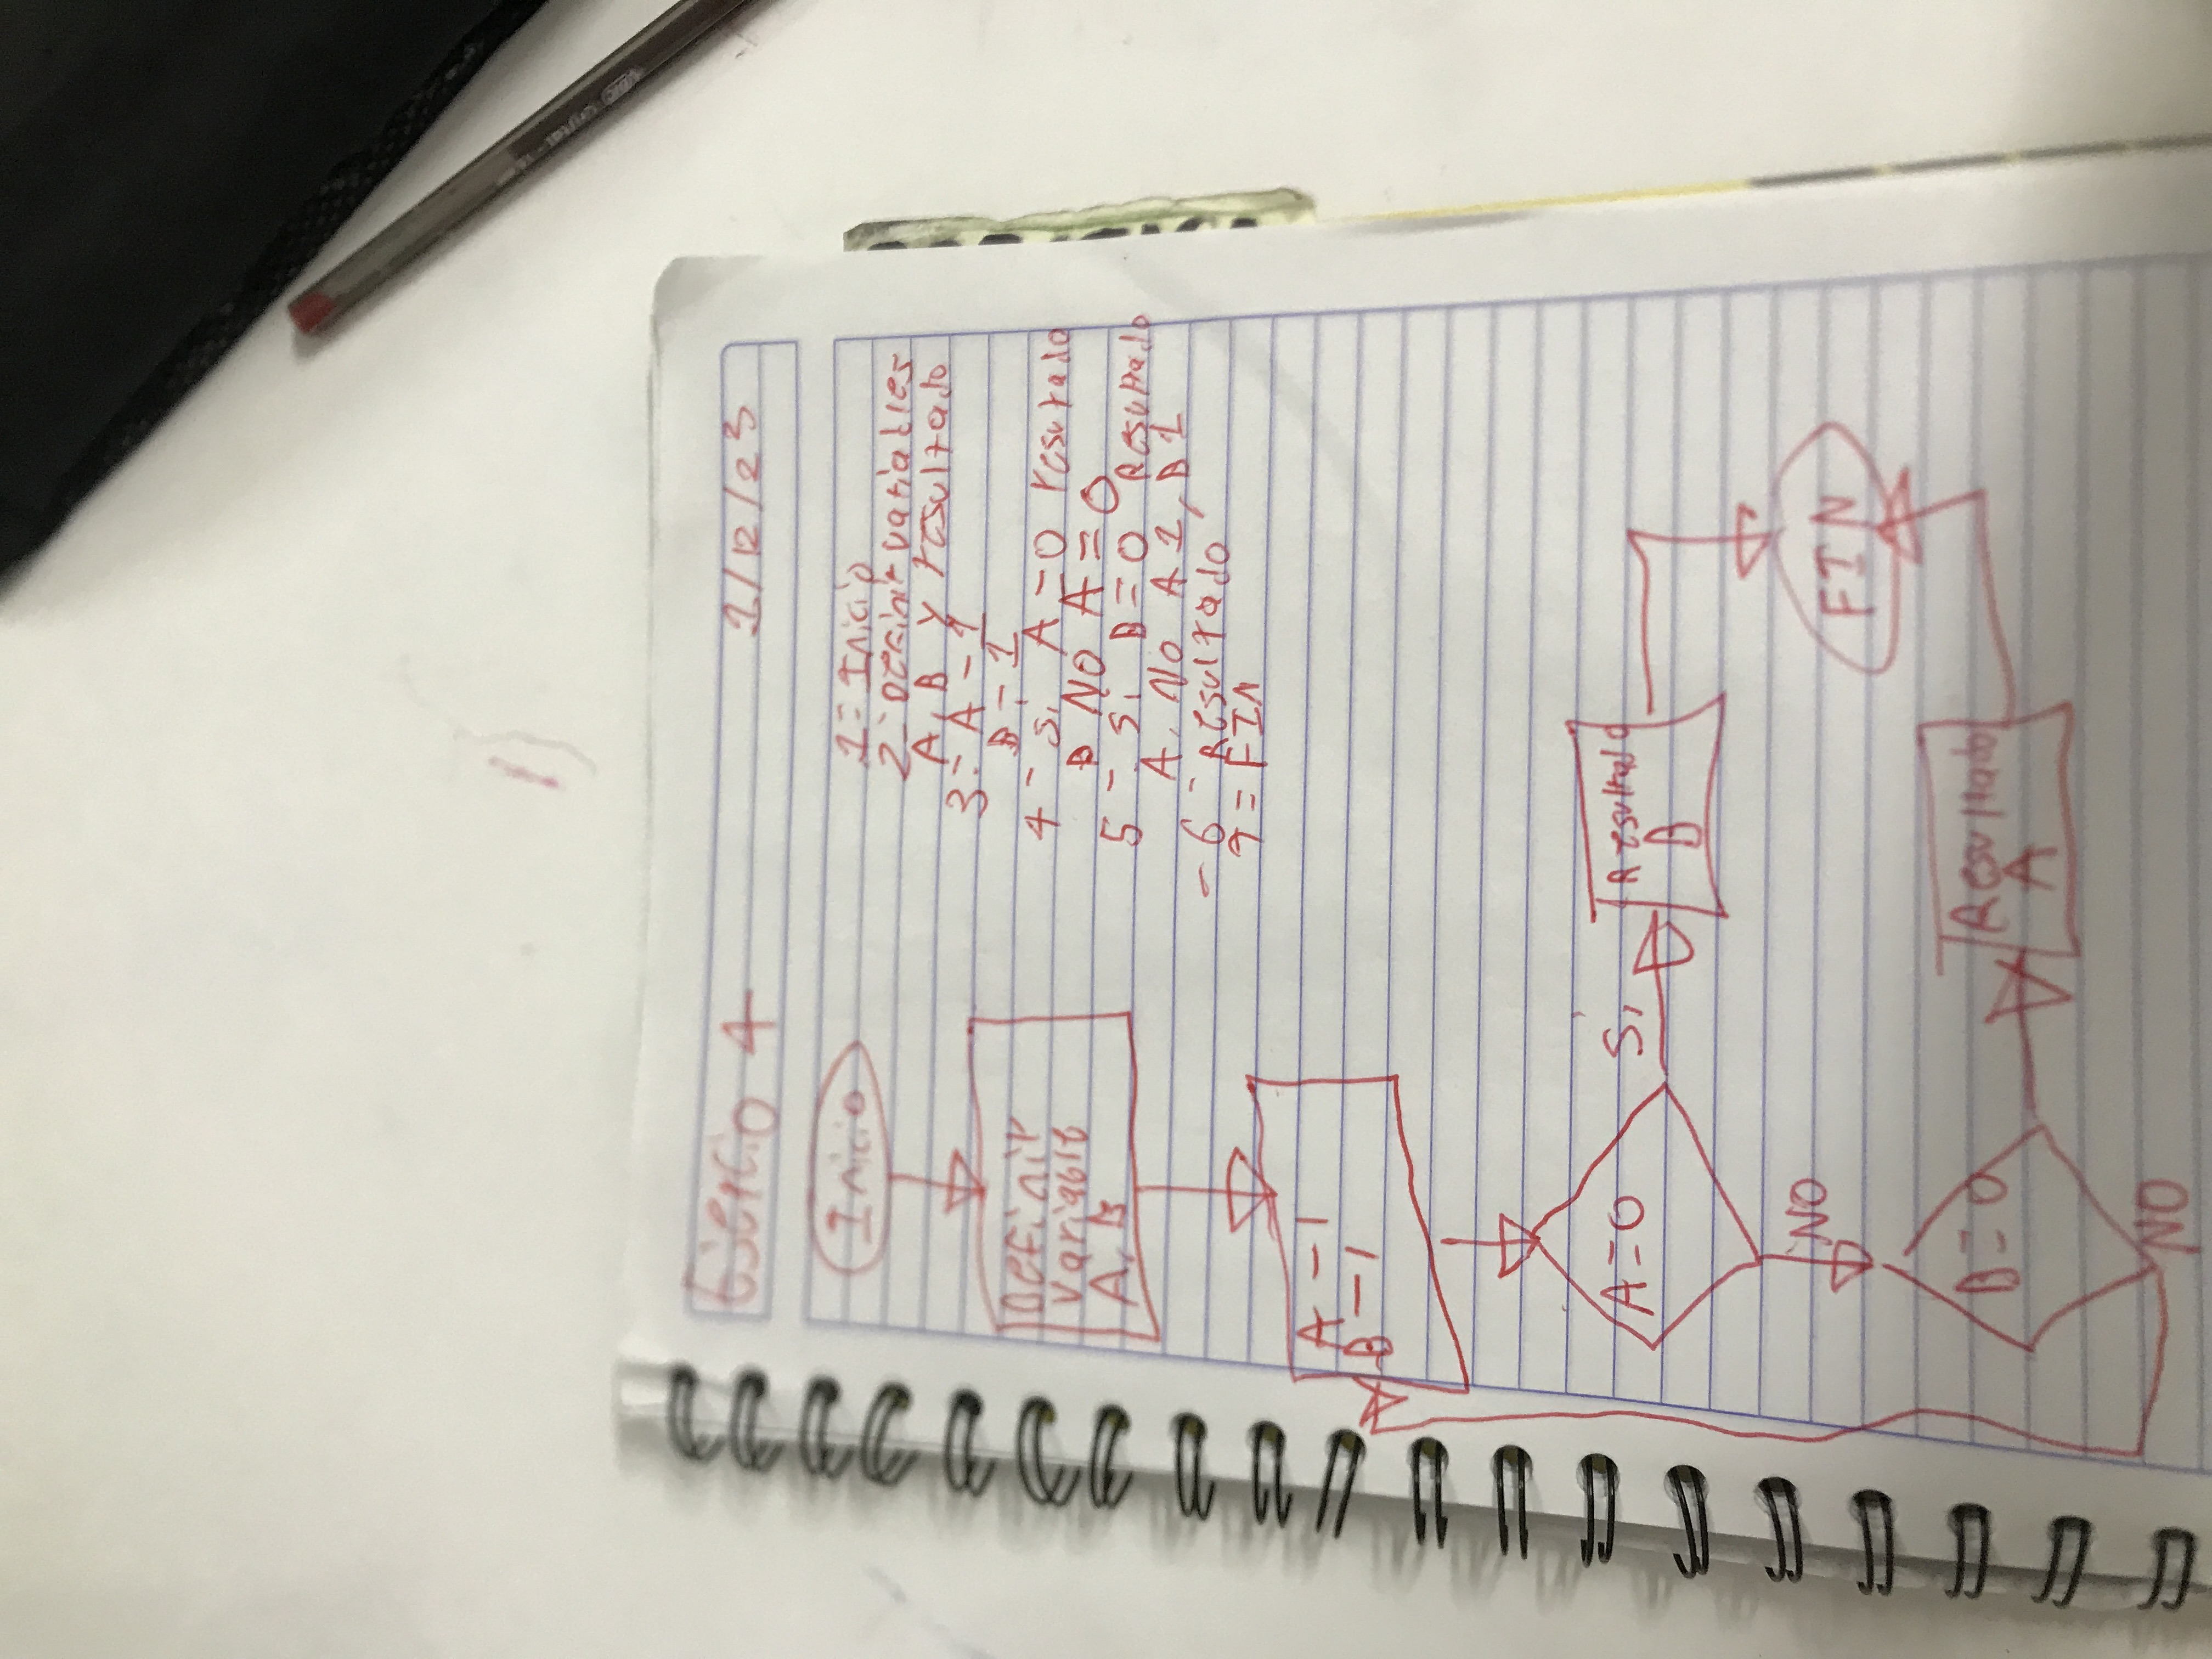 Ejercicio 4
1/12/23
1= Inicio
2- Definir variables
A, B y resultado
3= A-1
B-1
4- Si A=0 resultado
B No A=0
5- Si B=0 Resultado
A, No A1, B1
-6- Resultado
7= FIN
Inicio
Definir
Variable
A, B
A-1
B-1
A=0
Si
Resultado
B
NO
FIN
B=0
Resultado
A
NO